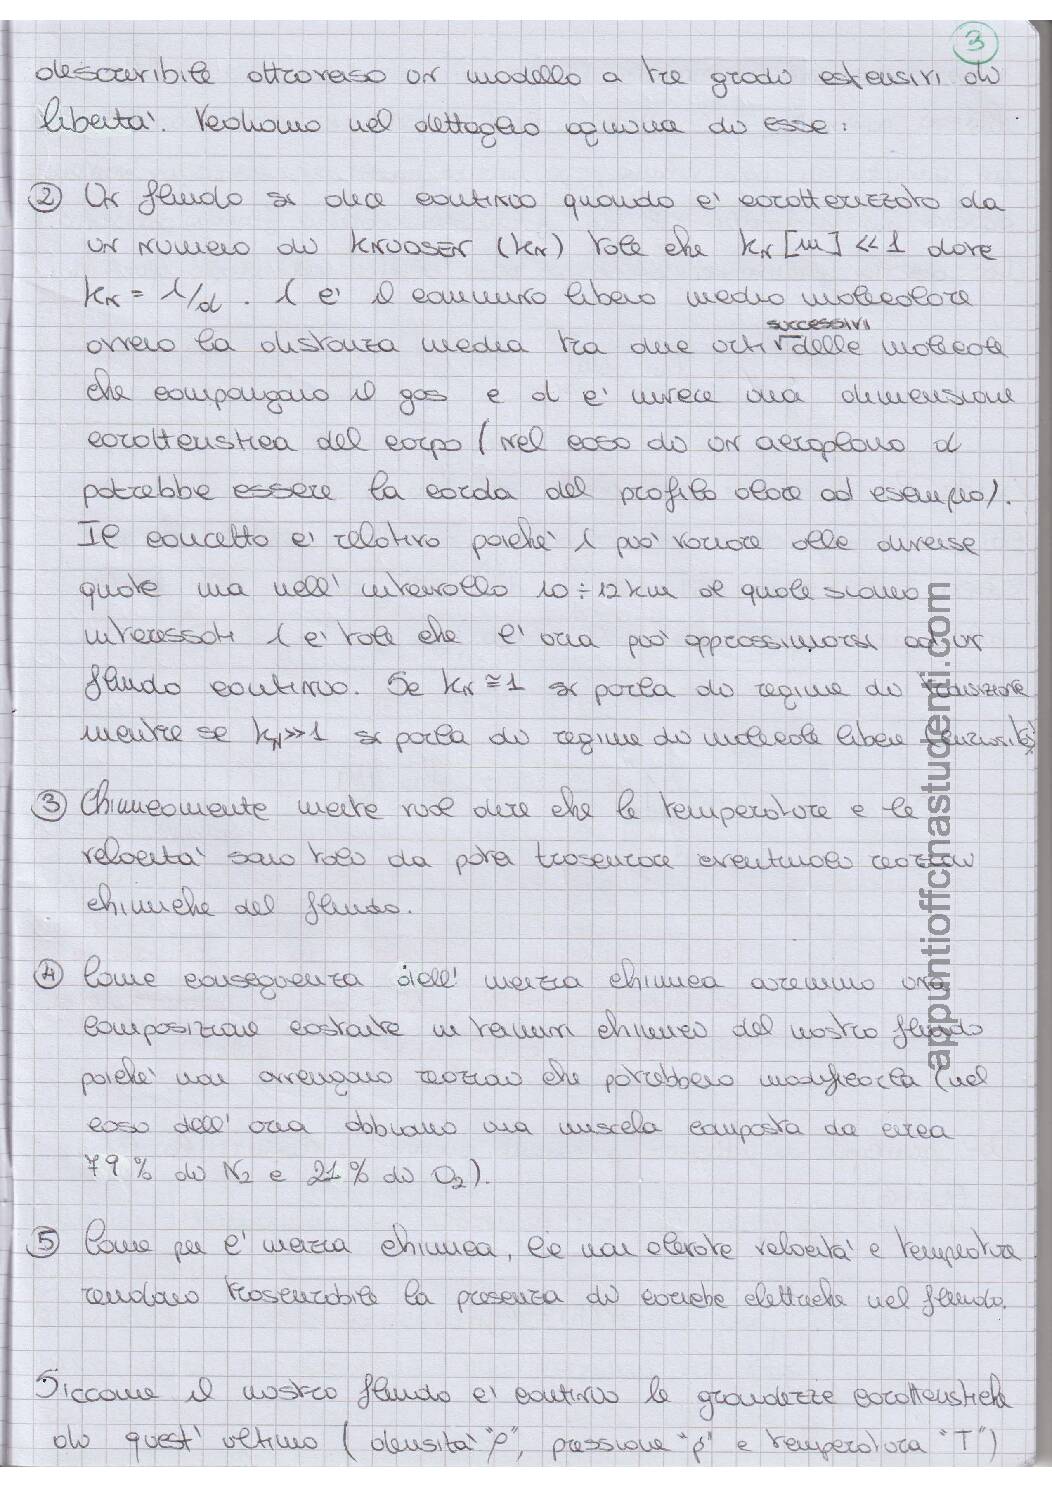 3
descrivibile attraverso un modello a tre gradi estensivi di
libertà. Vediamo nel dettaglio ognuna di esse:
2 Un fluido si dice continuo quando e' caratterizzato da
un numero di KNUDSEN (KN) tale che KN [m] << 1 dove
KN = λ/d . λ e' il cammino libero medio molecolare
successivi
ovvero la distanza media tra due urti delle molecole
che compongono il gas e d e' invece una dimensione
caratteristica del corpo (nel caso di un aeroplano d
potrebbe essere la corda del profilo alare ad esempio).
Il concetto e' relativo poichè λ può variare alle diverse
quote ma nell' intervallo 10÷12 km al quale siamo
interessati λ e' tale che l' aria può approssimarsi ad un
fluido continuo. Se KN ≅ 1 si parla di regime di transizione
mentre se KN >> 1 si parla di regime di molecole libere
3 Chimicamente inerte vuol dire che le temperature e le
velocità sono tali da poter trascurare eventuali reazioni
chimiche del fluido.
4 Come conseguenza dell' inerzia chimica avremmo una
composizione costante in termini chimici del nostro fluido
poichè non avvengono reazioni che potrebbero modificarla (nel
caso dell' aria abbiamo una miscela composta da circa
79 % di N2 e 21 % di O2).
5 Come per l' inerzia chimica, le non elevate velocità e temperature
rendono trascurabile la presenza di cariche elettriche nel fluido.
Siccome il nostro fluido e' continuo le grandezze caratteristiche
di quest' ultimo (densità "ρ", pressione "p" e temperatura "T")
appuntioffcinastudenti.com